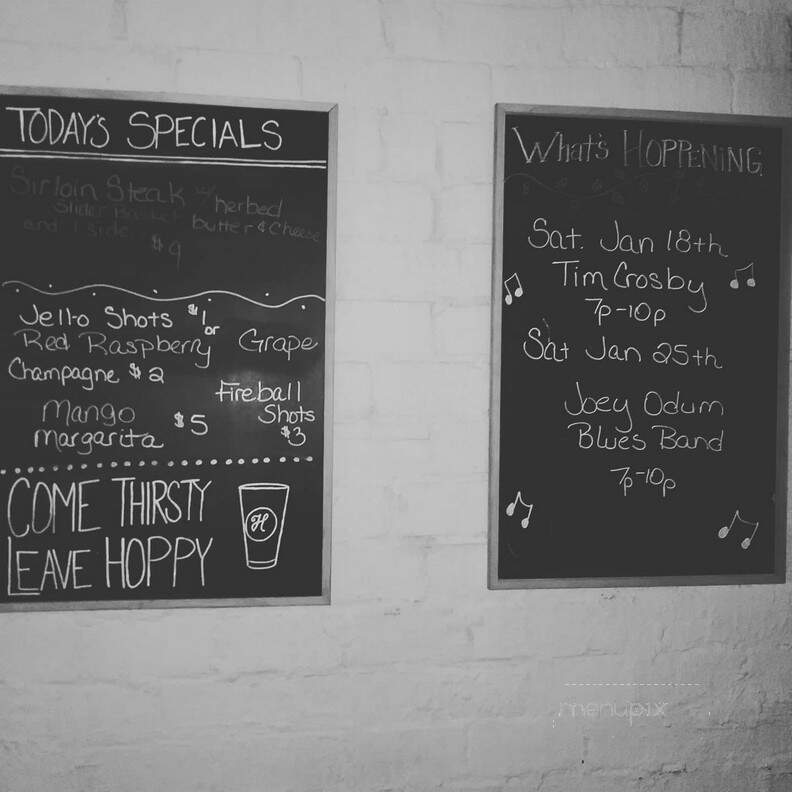 TODAY'S SPECIALS
Sirloin Steak w/ herbed
Slider Basket butter & Cheese
and 1 side. $9
Jell-o Shots $1
or
Red Raspberry Grape
Champagne $2
Fireball
Mango Shots
$5
margarita $3
COME THIRSTY
H
LEAVE HOPPY
What's HOPPENING
Sat. Jan 18th
Tim Crosby
7p-10p
Sat Jan 25th
Joey Odum
Blues Band
7p-10p
menupix